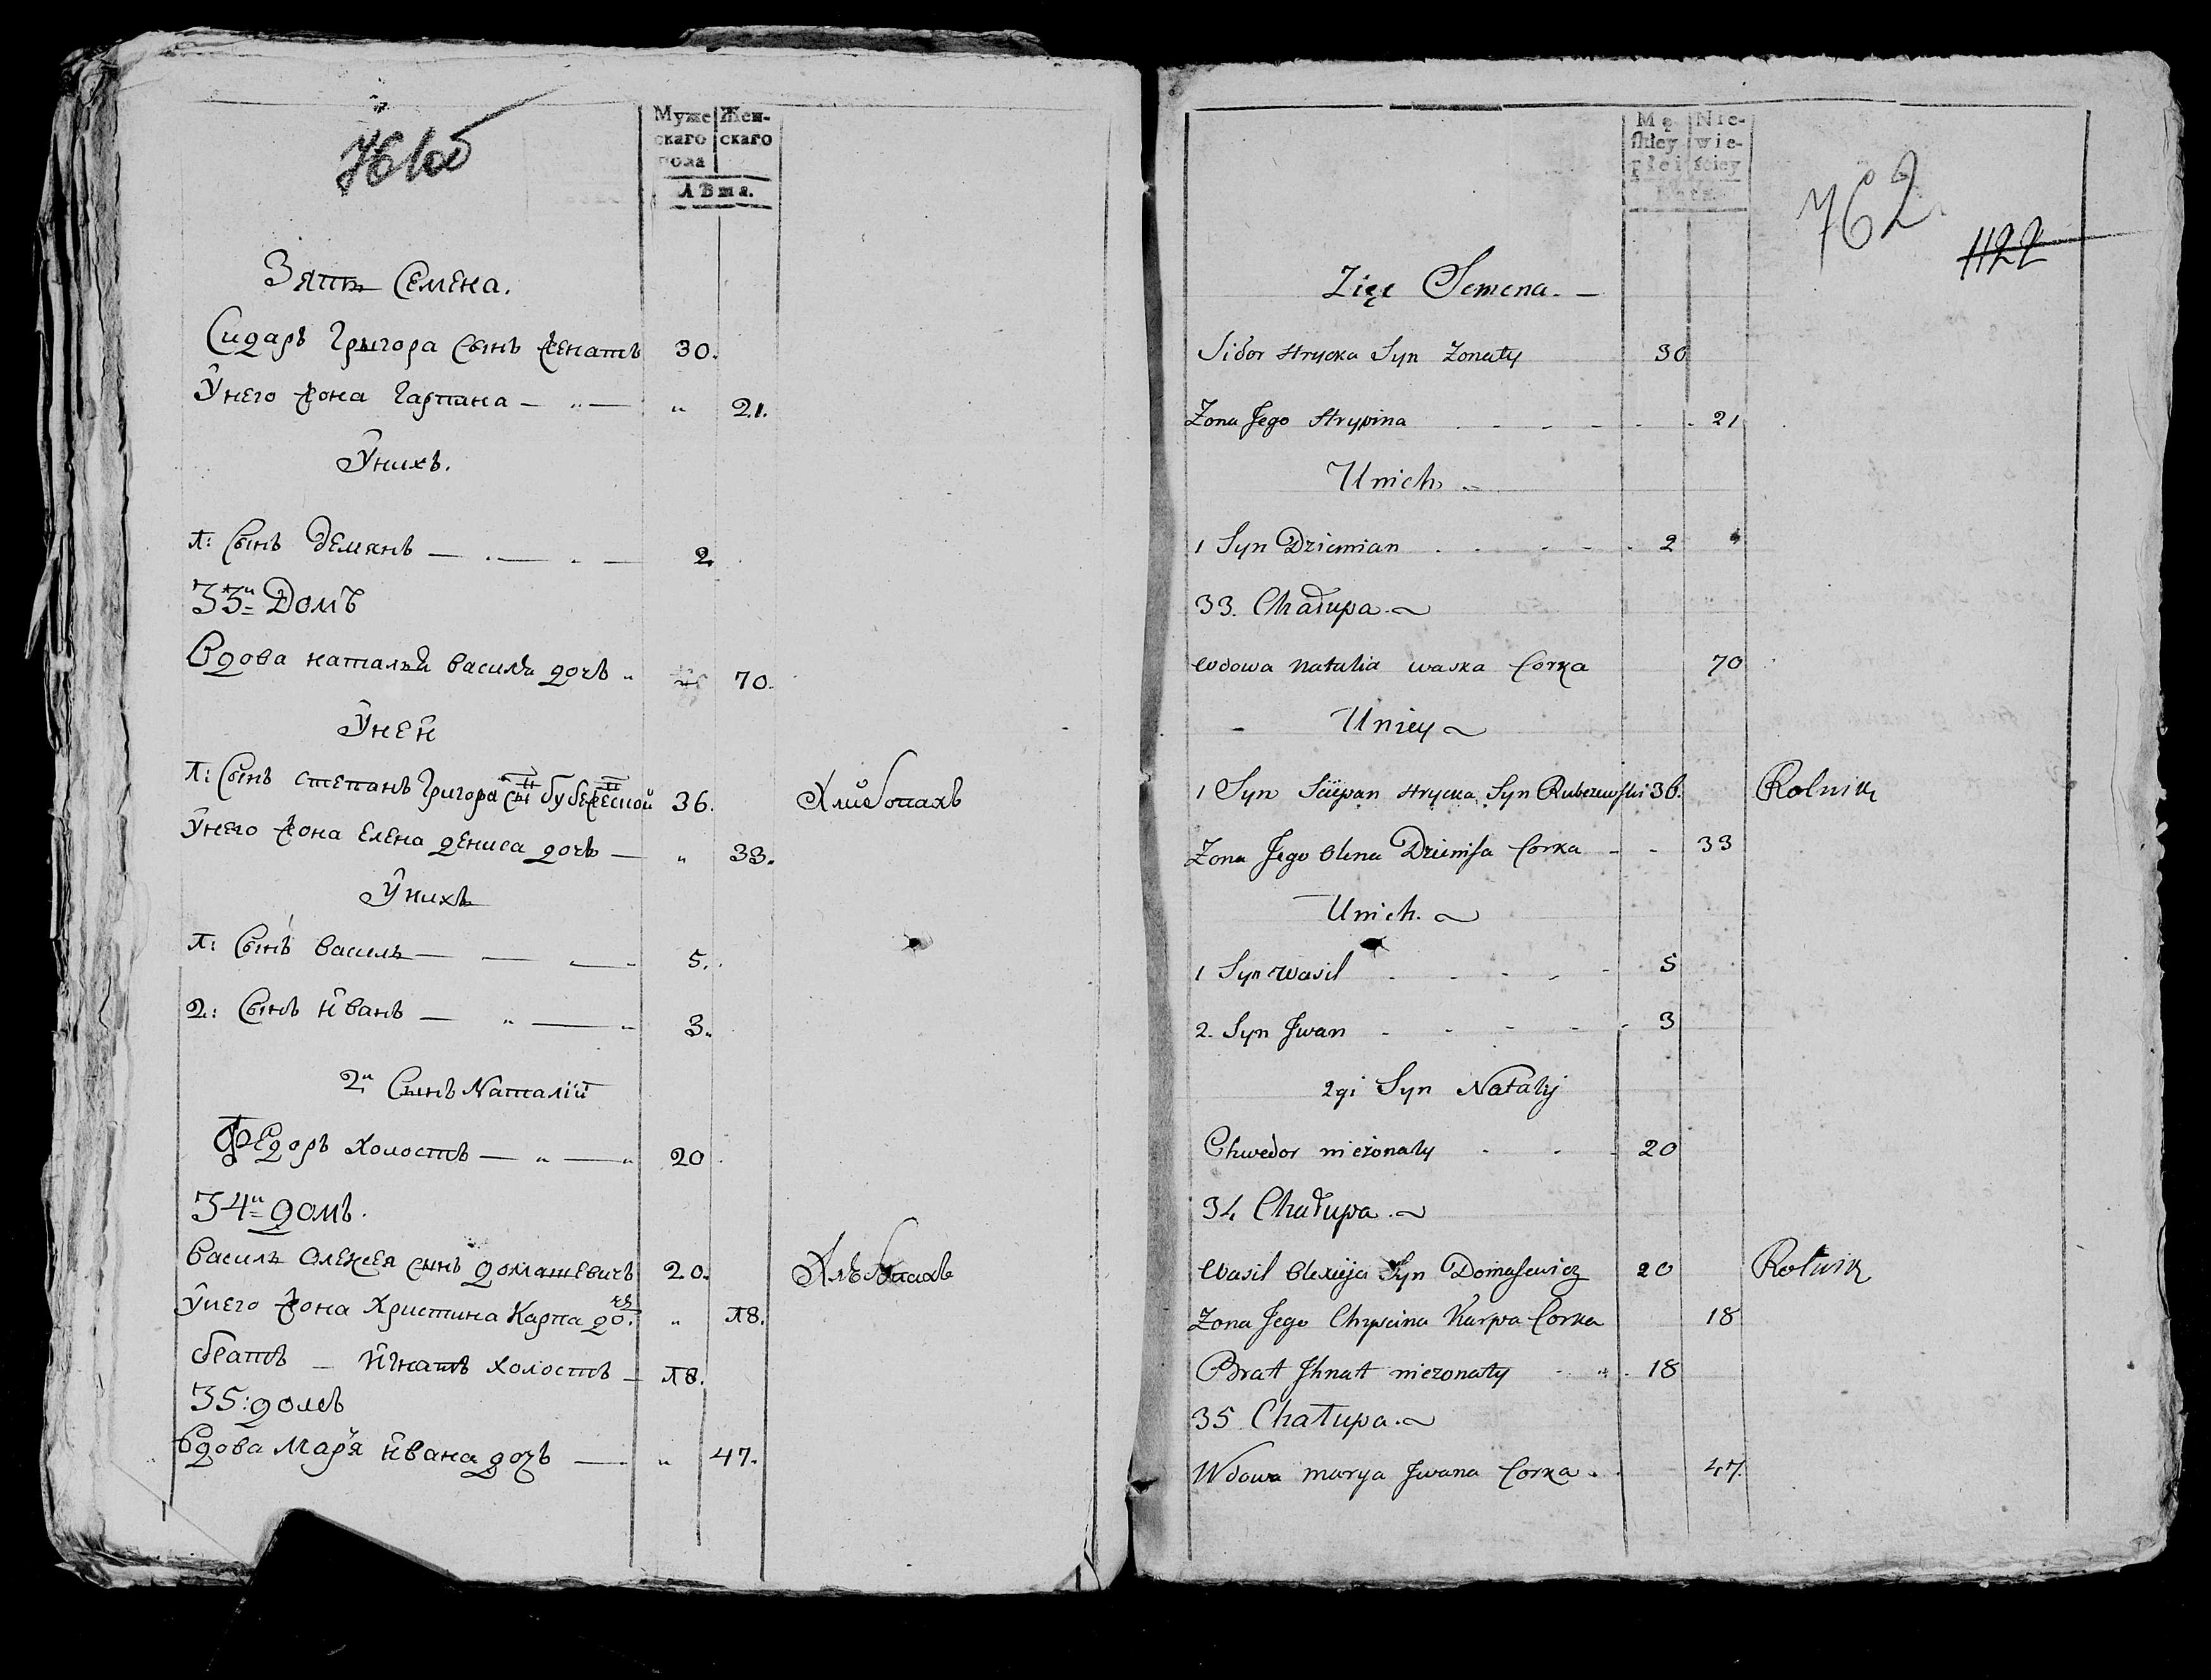 761об
Муже
скаго
рода
Жен-
скаго
лѣта.
Зять Семена.
Сидаръ Грыгора сынъ женатъ 30.
Ўнего жона Гарпана — „ — „ 21.
Ўнихъ.
1: Сынъ Демянъ — . — . — 2.
33й Домъ
Вдова наталья василя дочъ „ 70.
Ўней
1: Сынъ степанъ Григора сы 36. Хлибопахъ
ўнего жона Елена дениса дочъ — „ 33.
Ўнихъ
1: Сынъ василь — — — 5.
2: Сынъ иванъ — „ — „ 3.
2й Сынъ Наталій
Федоръ холостъ — „ — „ 20
34й домъ.
василь Олексея сынъ домашевичъ 20. Хлѣбопахъ
ўнего жона христина карпа доч. „ 18.
братъ — игнатъ холостъ — 18.
35: домъ
вдова Марья ивана дочъ — „ 47.
Mę-
skiey
płci
Nie-
wie-
ściey
Lata.
762.
1122
Zięć Semena. —
Sidor Hrycka Syn Zonaty 30
Zona Jego Hrypina 21
Unich
1 Syn Dziemian 2
33. Chałupa.
Wdowa Natalia waska Corka 70
Uniey
1 Syn Sciepan Hrycka Syn 36. Rolnik
Zona Jego Olena Dzienisa Corka 33
Unich.
1 Syn Wasil 5
2. Syn Jwan 3
2gi Syn Nataly
Chwedor nieżonaty 20
34 Chałupa.
Wasil Olexieja Syn Domasewicz 20 Rolnik
Zona Jego Chryscina Karpa Corka 18
Brat Jhnat niezonaty 18
35 Chałupa.
Wdowa marya Jwana Corka. 47.